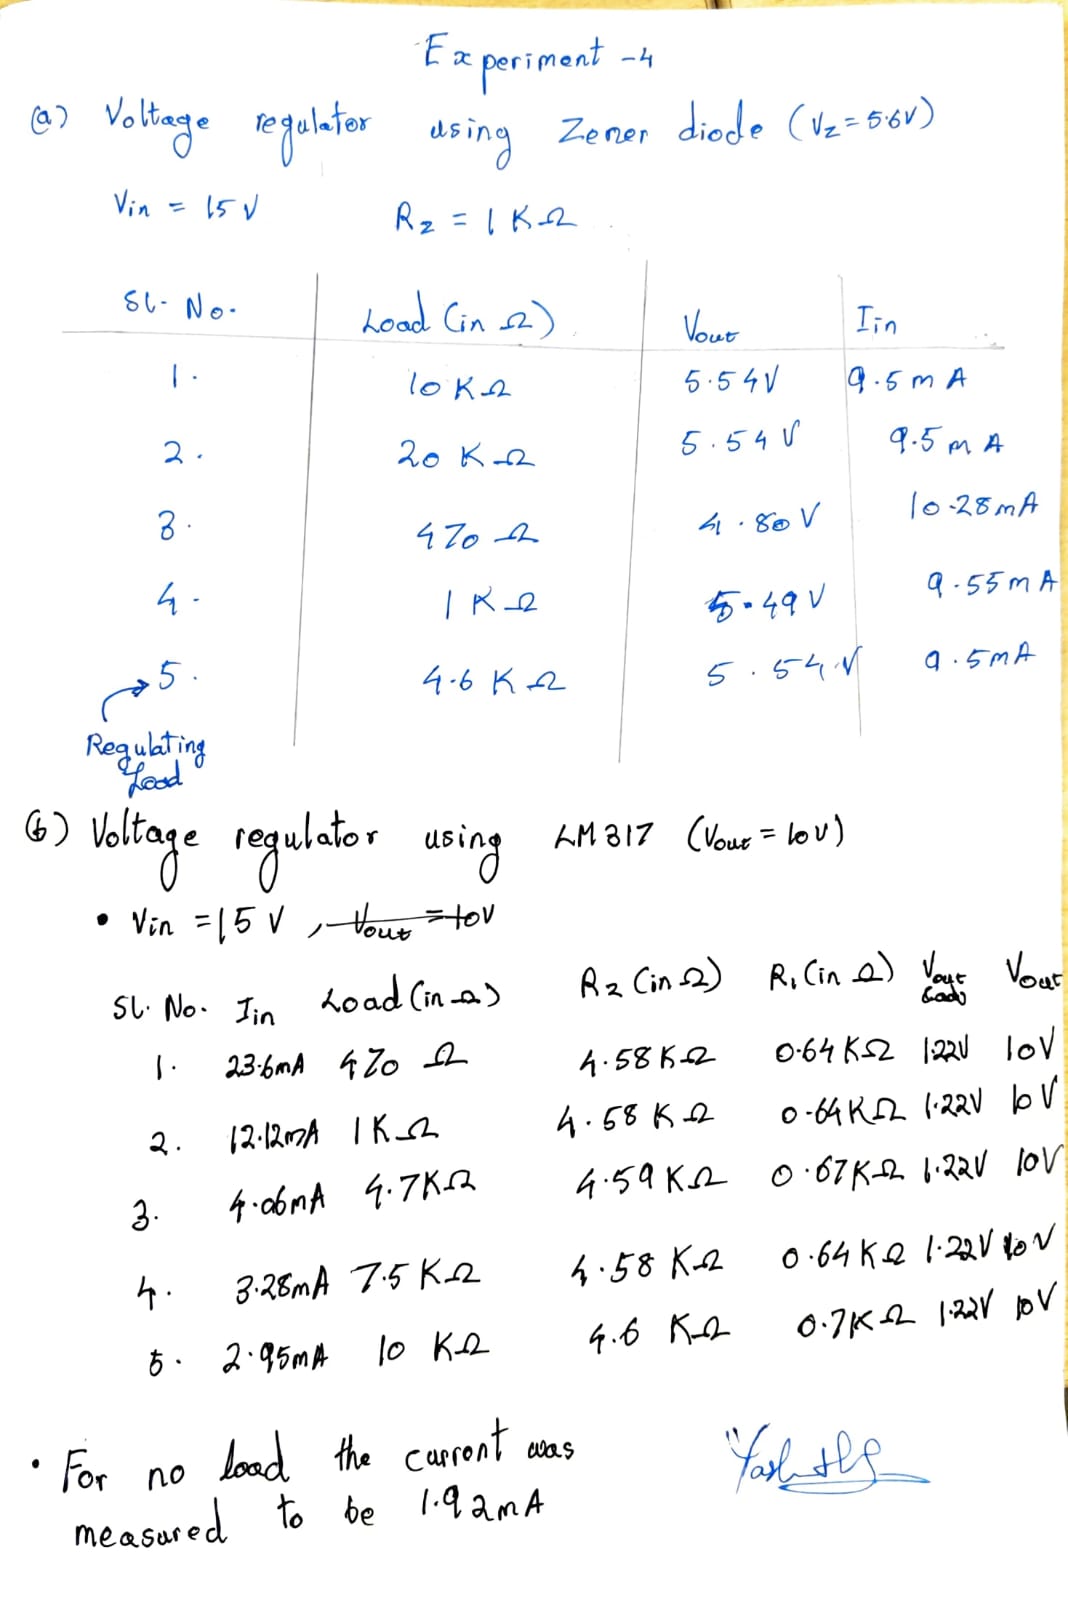 Experiment -4
(a) Voltage regulator using Zener diode (Vz = 5.6V)
Vin = 15 V Rz = 1 KΩ
Sl. No. Load (in Ω) Vout Iin
1. 10 KΩ 5.54V 9.5 mA
2. 20 KΩ 5.54 V 9.5 mA
3. 470 Ω 4.80 V 10.28mA
4. 1 KΩ 5.49 V 9.55 mA
5. 4.6 KΩ 5.54 V 9.5mA
Regulating
Load
(b) Voltage regulator using LM317 (Vout = 10V)
• Vin = 15 V , Vout = 10V
Sl. No. Iin Load (in Ω) R2 (in Ω) R1 (in Ω) Vout Vout
1. 23.6mA 470 Ω 4.58 KΩ 0.64 KΩ 1.22V 10V
2. 12.12mA 1 KΩ 4.58 KΩ 0.64 KΩ 1.22V 10V
3. 4.06mA 4.7KΩ 4.59 KΩ 0.67 KΩ 1.22V 10V
4. 3.28mA 7.5 KΩ 4.58 KΩ 0.64 KΩ 1.22V 10V
5. 2.95mA 10 KΩ 4.6 KΩ 0.7KΩ 1.22V 10V
• For no load the current was
measured to be 1.92mA